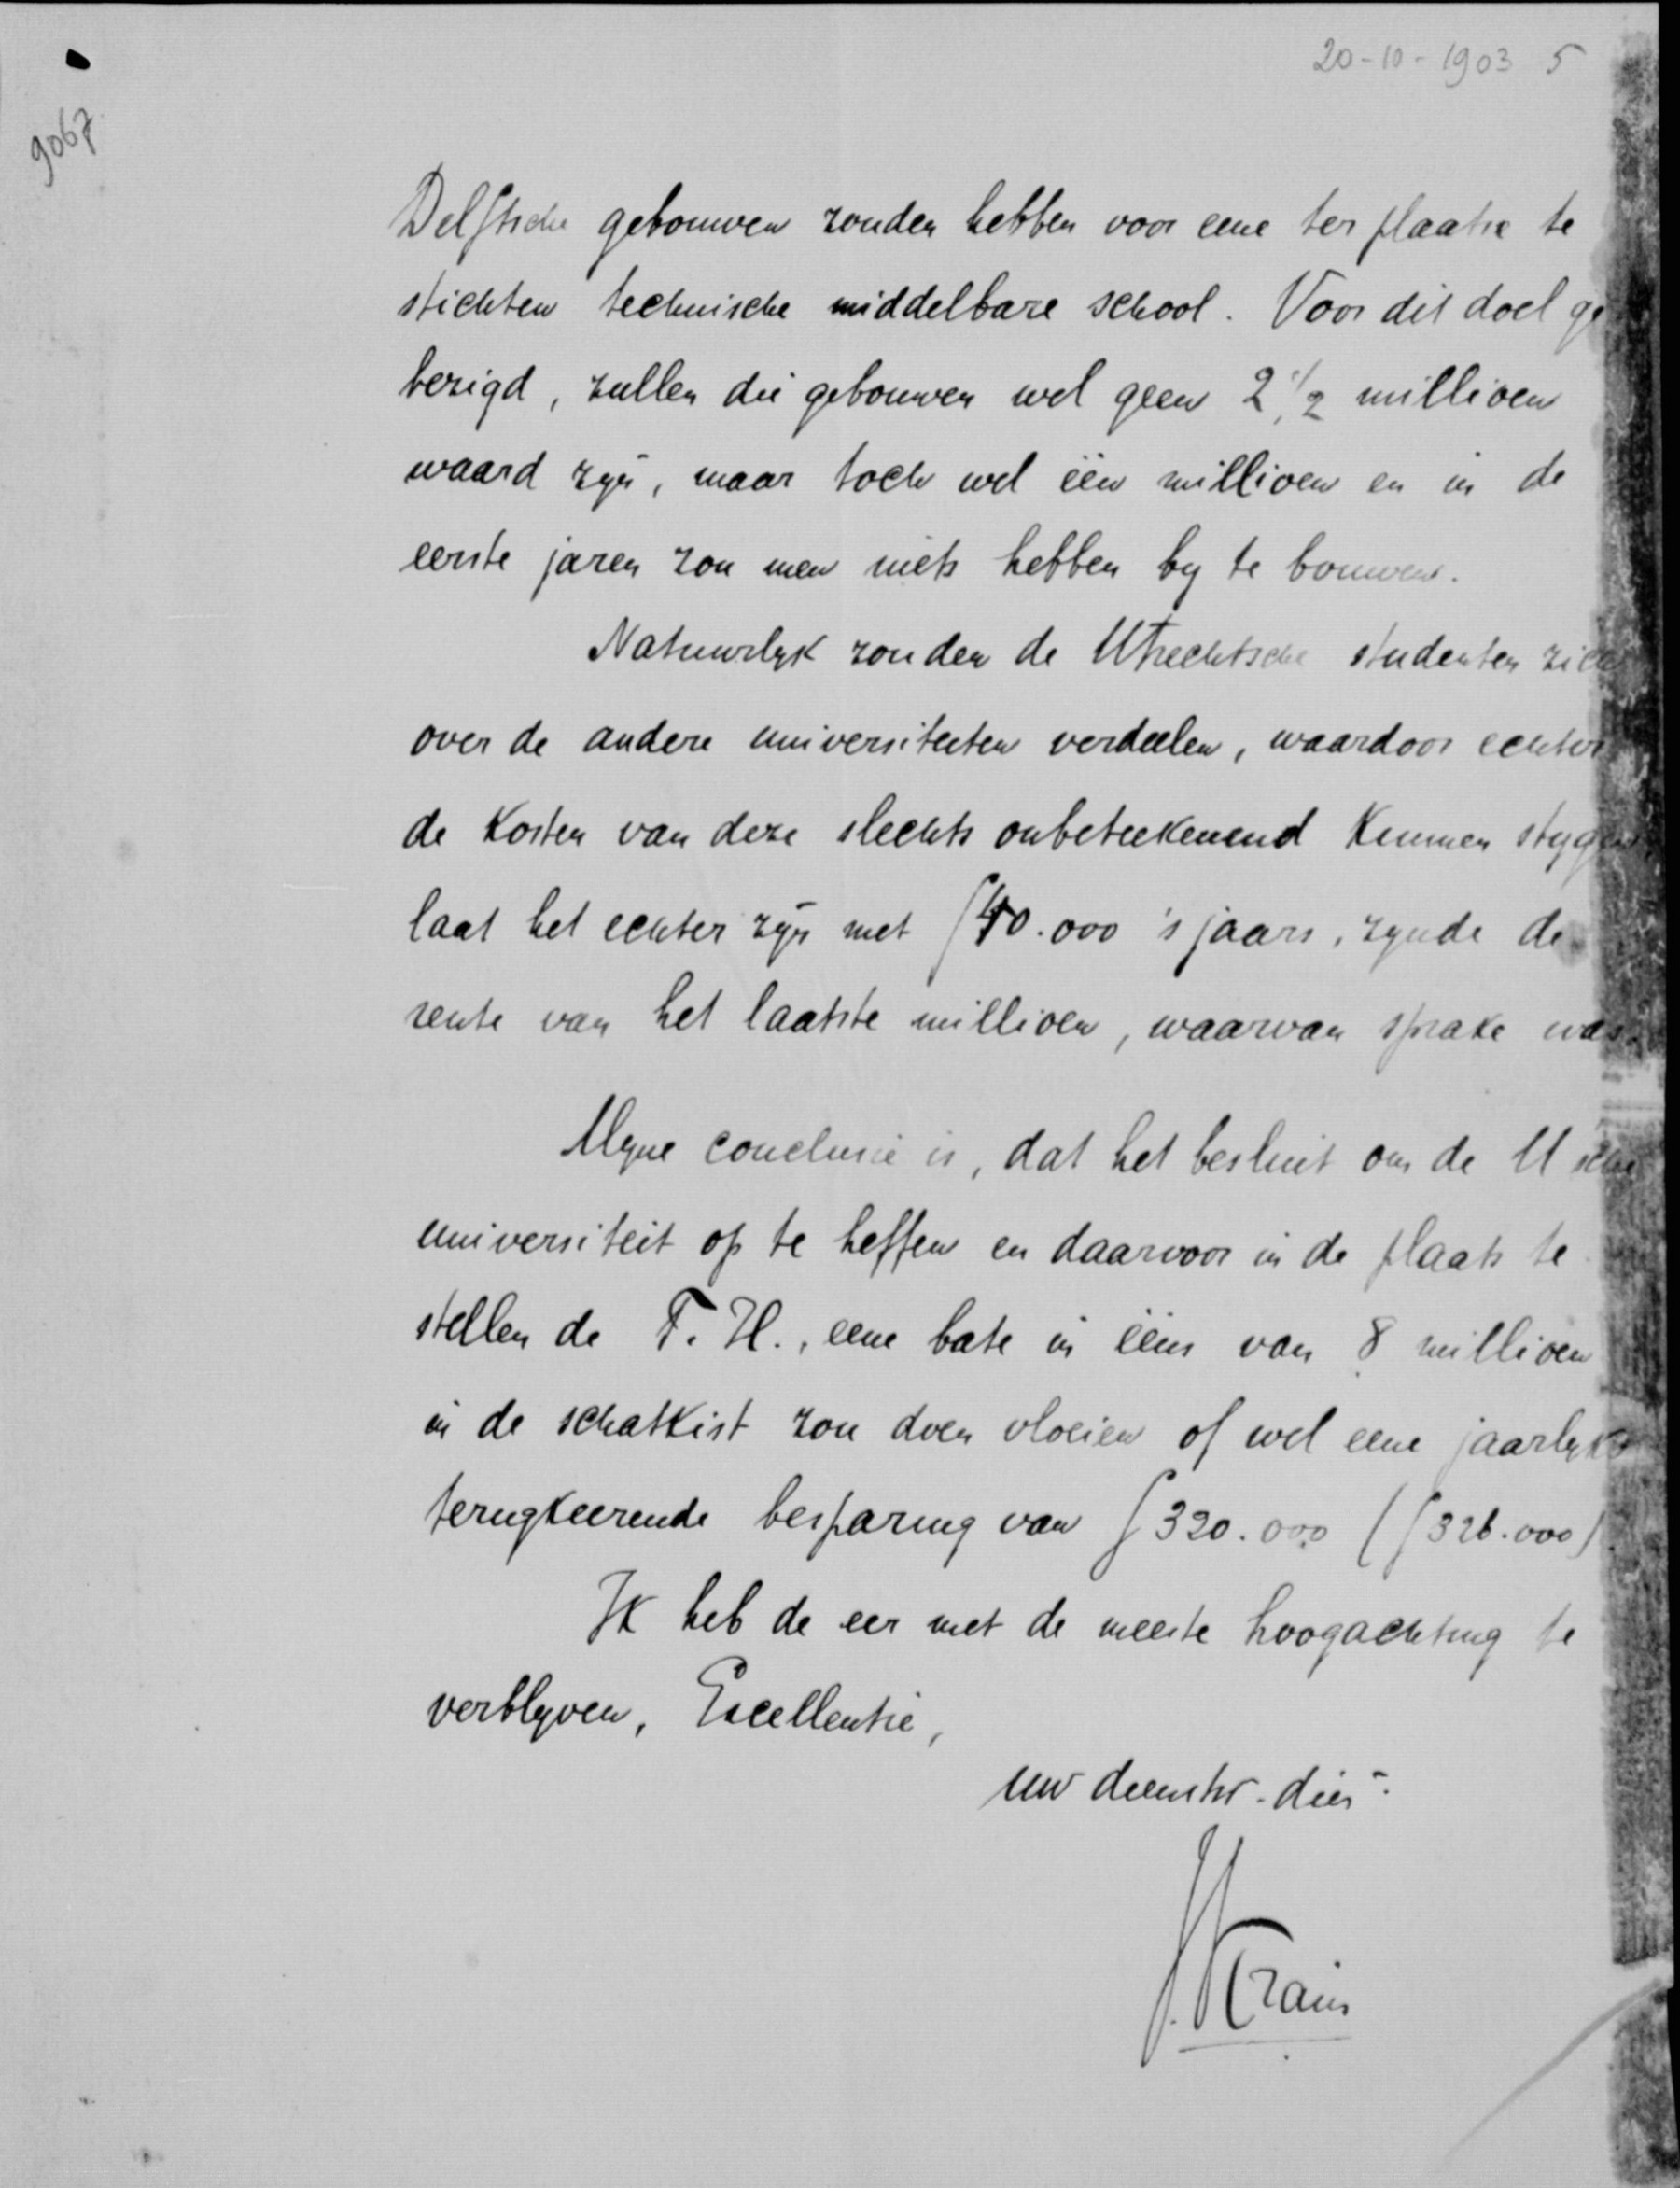 20-10-1903 5
9067
Delftsche gebouwen zouden hebben voor eene ter plaatse te
stichten technische middelbare school. Voor dit doel ge
bezigd, zullen die gebouwen wel geen 2 1/2 millioen
waard zyn, maar toch wel één millioen en in de
eerste jaren zou men niets hebben by te bouwen.
Natuurlyk zouden de Utrechtsche studenten zich
over de andere universiteiten verdeelen, waardoor echter
de kosten van deze slechts onbeteekenend kunnen stygen
laat het echter zyn met f 40.000 's jaars, zynde de
rente van het laatste millioen, waarvan sprake was.
Myne conclusie is, dat het besluit om de U sche
universiteit op te heffen en daarvoor in de plaats te
stellen de T. H., eene bate in ééns van 8 millioen
in de schatkist zou doen vloeien of wel eene jaarlyks
terugkeerende besparing van f 320.000 (f 326.000)
Ik heb de eer met de meeste hoogachting te
verblyven, Excellentie,
uw dienstw. dien.
J. Kraus